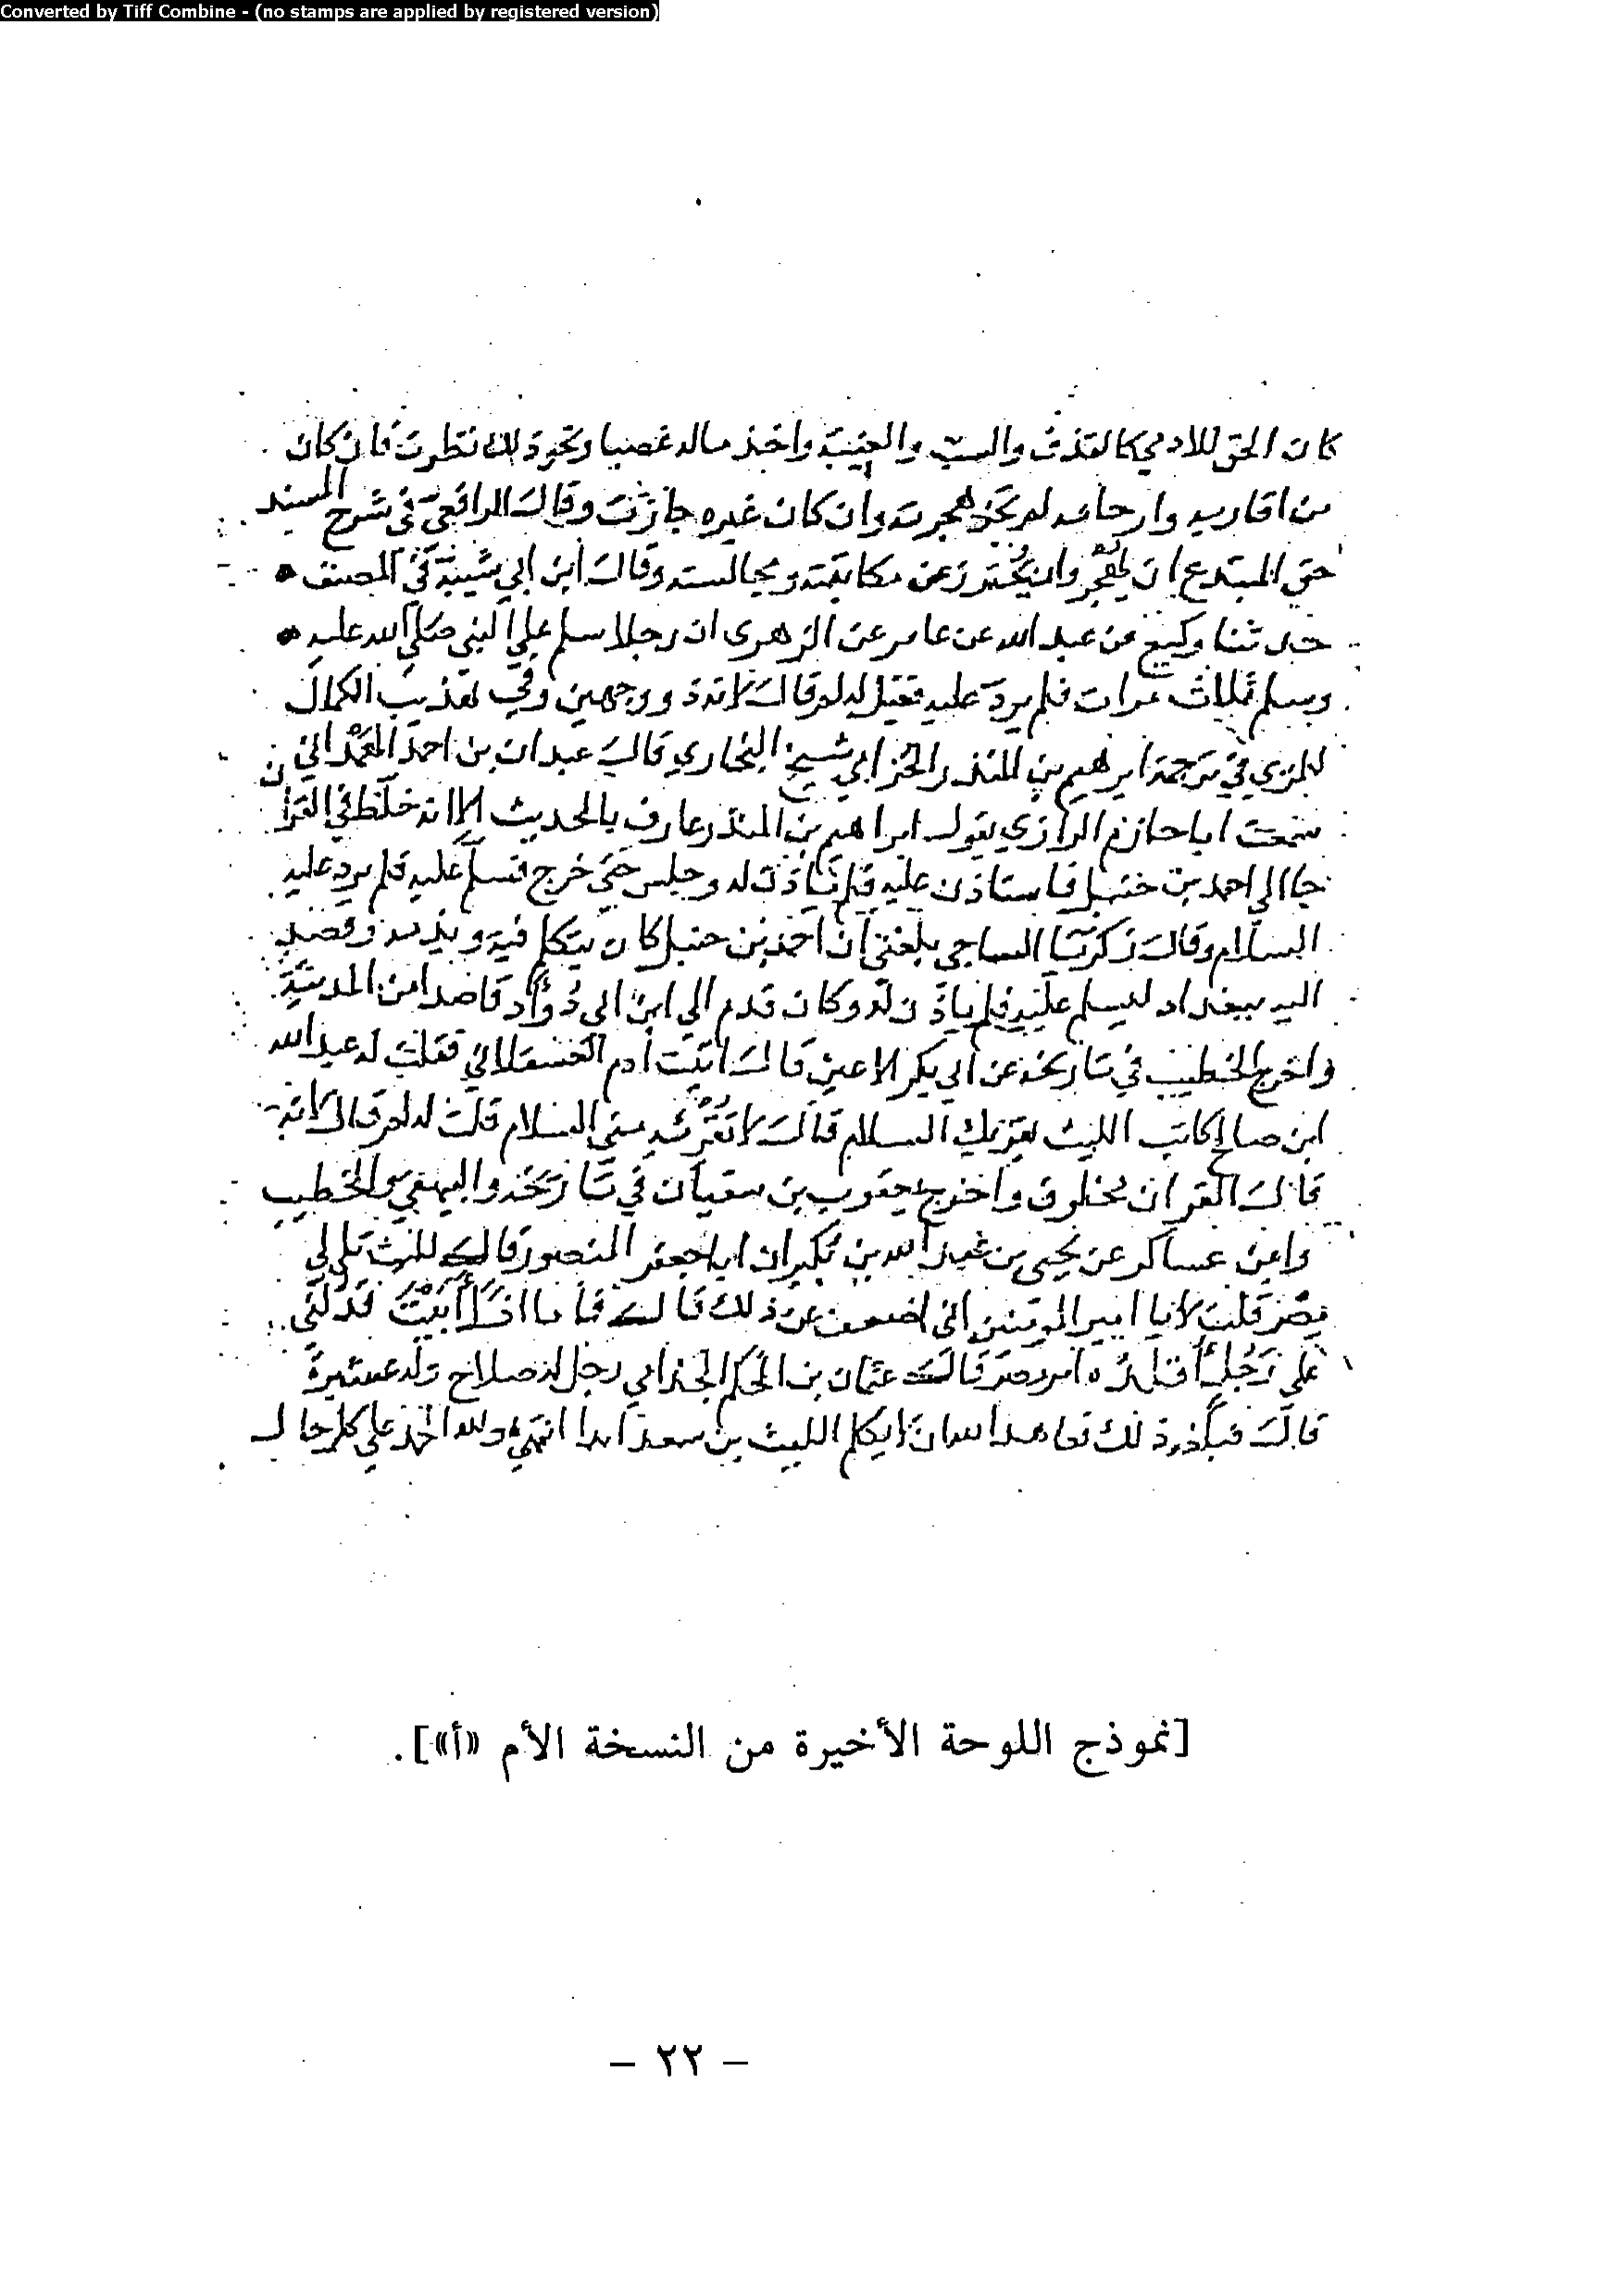 Converted by Tiff Combine - (no stamps are applied by registered version)
كان الحق للادمي كالقذف والسب والغيبة واخذ ماله غصبا ونحو ذلك نظرت فان كان
من اقاربه وارحامه لم يجز هجرته وان كان غيره جازت وقال الرافعي في شرح المسند
حق المبتدع ان يهجر وان يحترز عن مكالمته ومجالسته وقال ابن ابي شيبة في المصنف
حدثنا وكيع عن عبد الله عن عامر عن الزهرى ان رجلا سلم علي النبي صلي الله عليه
وسلم ثلاث مرات فلم يرد عليه فقيل له لم قال لانه ذو وجهين وفي تهذيب الكمال
للمزي في ترجمة ابرهيم بن المنذر الحزامي شيخ البخاري قال عبدان بن احمد الهمداني
سمعت ابا حازم الرازي يقول ابراهيم بن المنذر عارف بالحديث الا انه خلط في القران
جا الى احمد بن حنبل فاستاذن عليه فلم ياذن له وجلس حتي خرج فسلم عليه فلم يرد عليه
السلام وقال زكريا الساجي بلغني ان احمد بن حنبل كان يتكلم فيه ويذمه وقصد
اليه ببغداد ليسلم عليه فلم ياذن له وكان قدم الي ابن ابى دؤاد قاصدا من المدينة
واخرج الخطيب في تاريخه عن ابي بكر الاعين قال اتيت ادم العسقلاني فقلت له عبد الله
ابن صالح كاتب الليث يقريك السلام قال لا تقرئه مني السلام قلت له لم قال لانه
قال القران مخلوق واخرج يعقوب بن سفيان في تاريخه والبيهقي والخطيب
وابن عساكر عن يحيى بن عبد الله بن بكير ان ابا جعفر المنصور قال لليث تلي لي
مصر قلت لا يا امير المومنين اني اضعف عن ذلك قال فاما اذا أبيت فدلني
علي رجل أقلده امر مصر قال عثمان بن الحكم الجذامي رجل له صلاح وله عشيرة
قال فبلغه ذلك فعاهد الله ان لا يكلم الليث بن سعد ابدا انتهي ولله الحمد علي كل حال
[نموذج اللوحة الأخيرة من النسخة الأم «أ»].
– ٢٢ –